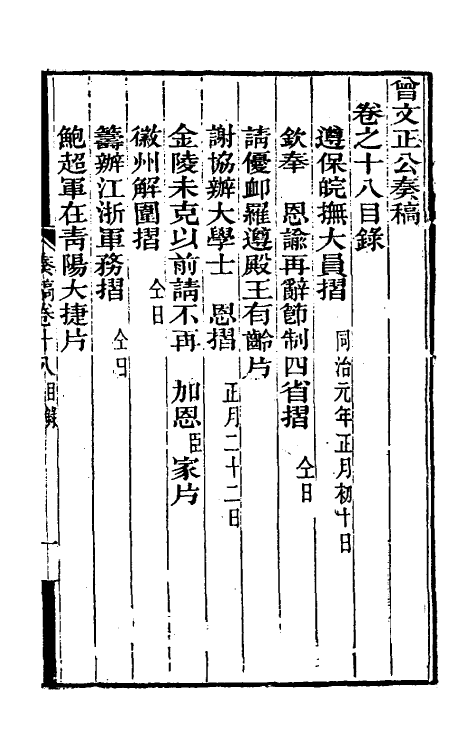 曾文正公奏稿
卷之十八目錄
遵保皖撫大員摺 同治元年正月初十日
欽奉 恩諭再辭節制四省摺 仝日
請優卹羅遵殿王有齡片
謝協辦大學士 恩摺 正月二十二日
金陵未克以前請不再 加恩臣家片
徽州解圍摺 仝日
籌辦江浙軍務摺 仝日
鮑超軍在靑陽大捷片
奏稿卷十八目錄 一